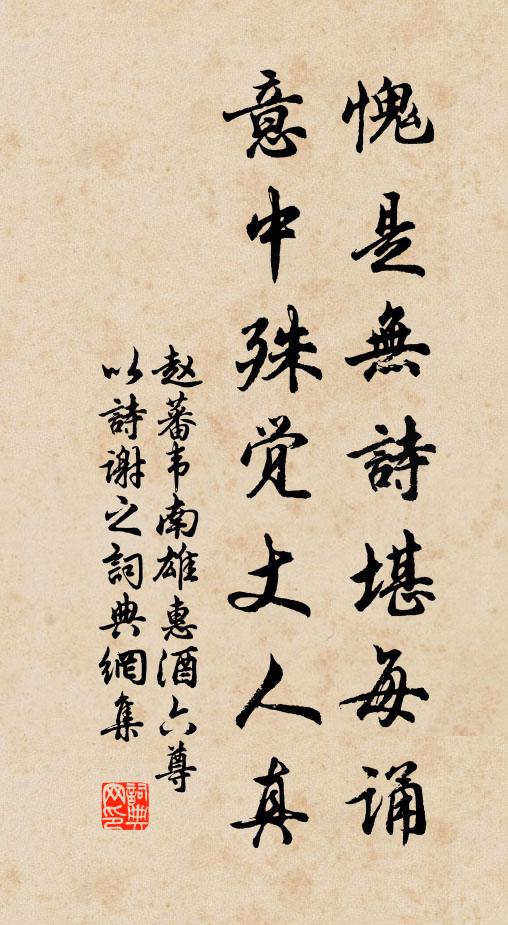 愧是無詩堪每誦
意中殊觉丈人真
赵蕃韦南雄惠酒六尊
以詩谢之詞典網集
詞典网印